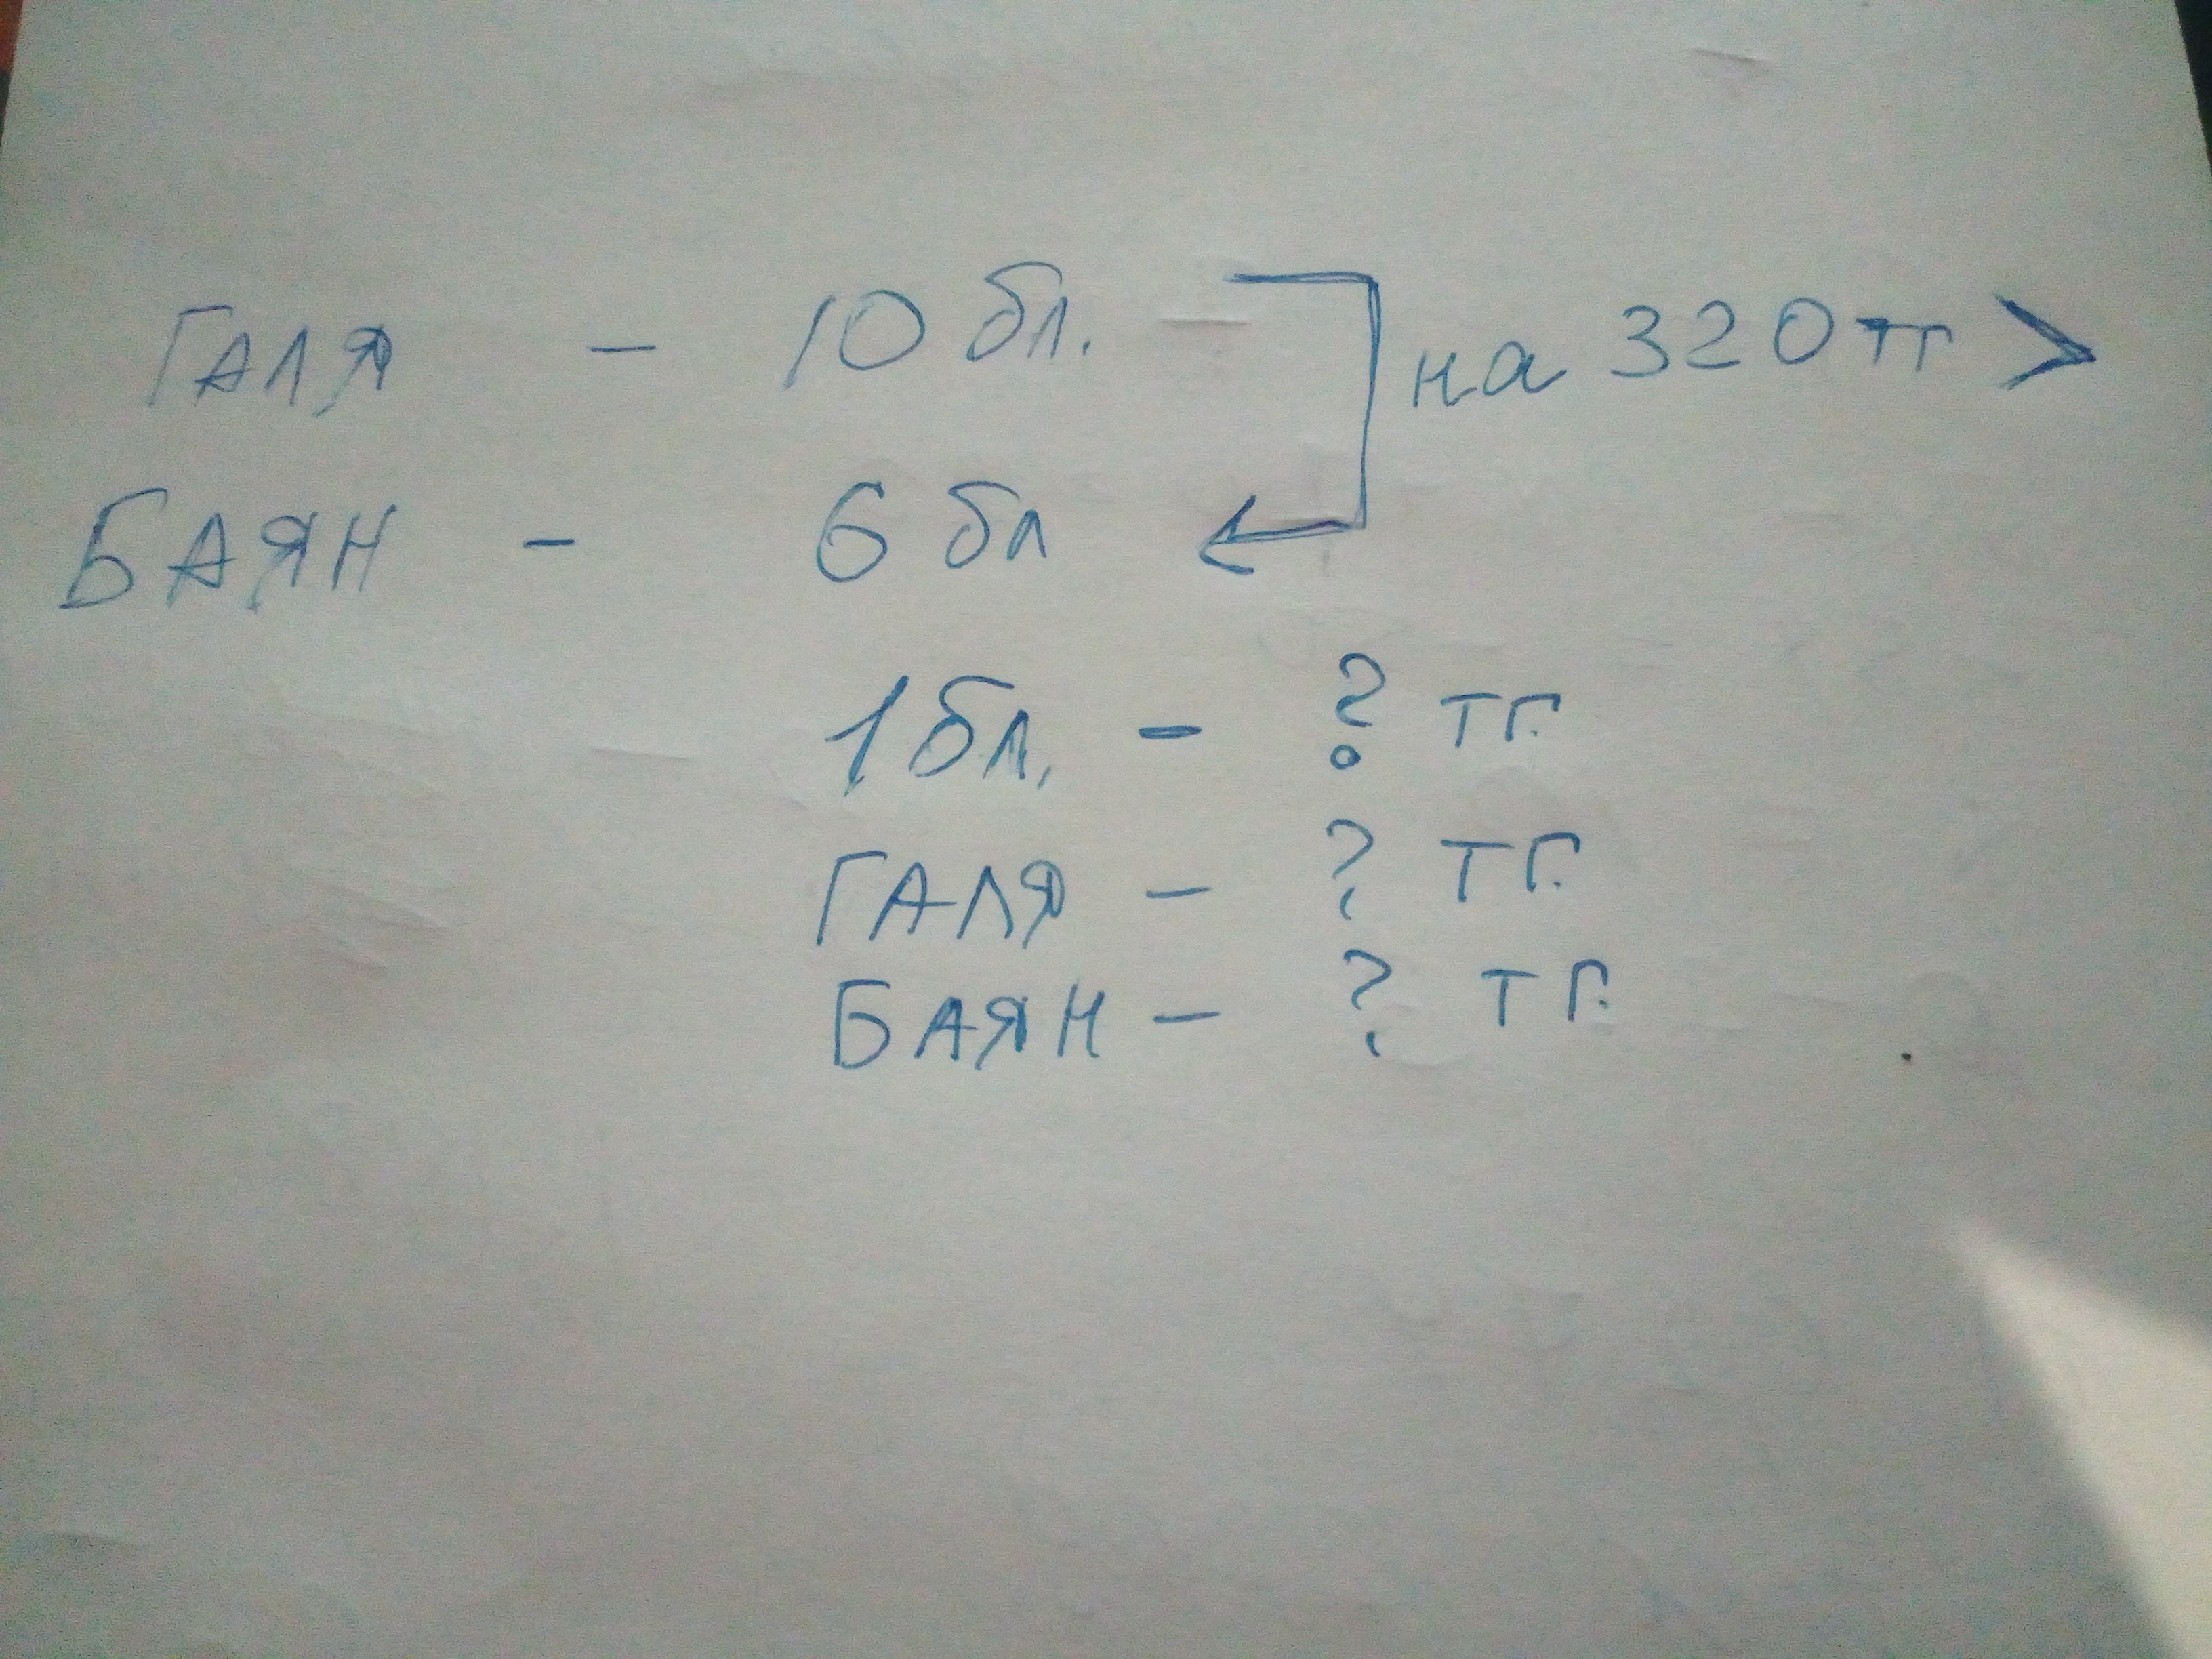 ГАЛЯ - 10 бл. на 320 тг >
БАЯН - 6 бл
1 бл. - ? тг.
ГАЛЯ - ? тг.
БАЯН - ? тг.